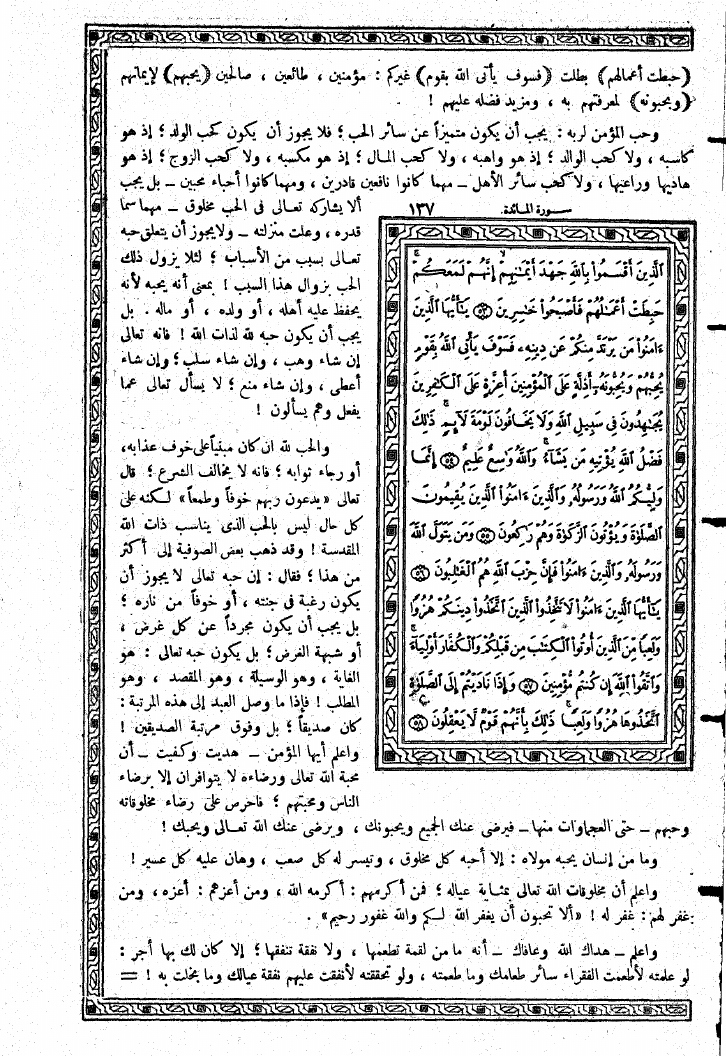 (حبطت أعمالهم) بطلت (فسوف يأتى الله بقوم) غيركم : مؤمنين ، طائعين ، صالحين (يحبهم) لإيمانهم
(ويحبونه) لمعرفتهم به ، ومزيد فضله عليهم !
وحب المؤمن لربه : يجب أن يكون متميزاً عن سائر الحب ؛ فلا يجوز أن يكون كحب الولد ؛ إذ هو
كاسبه ، ولا كحب الوالد ؛ إذ هو واهبه ، ولا كحب المال ؛ إذ هو مكسبه ، ولا كحب الزوج ؛ إذ هو
هاديها وراعيها ، ولا كحب سائر الأهل ــ مهما كانوا نافعين قادرين ، ومهما كانوا أحباء محبين ــ بل يجب
ألا يشاركه تعالى فى الحب مخلوق ــ مهما سما
قدره ، وعلت منزلته ــ ولا يجوز أن يتعلق حبه
تعالى بسبب من الأسباب ؛ لئلا يزول ذلك
الحب بزوال هذا السبب ! بمعنى أنه يحبه لأنه
يحفظ عليه أهله ، أو ولده ، أو ماله . بل
يجب أن يكون حبه لله لذات الله ! فانه تعالى
إن شاء وهب ، وإن شاء سلب ؛ وإن شاء
أعطى ، وإن شاء منع ؛ لا يسأل تعالى عما
يفعل وهم يسألون !
والحب لله ان كان مبنياً على خوف عذابه ،
أو رجاء ثوابه ؛ فانه لا يخالف الشرع ؛ قال
تعالى «يدعون ربهم خوفاً وطمعاً» لكنه على
كل حال ليس بالحب الذى يناسب ذات الله
المقدسة ! وقد ذهب بعض الصوفية إلى أكثر
من هذا ؛ فقال : إن حبه تعالى لا يجوز أن
يكون رغبة فى جنته ، أو خوفاً من ناره ؛
بل يجب أن يكون مجرداً عن كل غرض ،
أو شبهة الغرض ؛ بل يكون حبه تعالى : هو
الغاية ، وهو الوسيلة ، وهو المقصد ، وهو
المطلب ! فإذا ما وصل العبد إلى هذه المرتبة :
كان صديقاً ؛ بل وفوق مرتبة الصديقين !
واعلم أيها المؤمن ــ هديت وكفيت ــ أن
محبة الله تعالى ورضاءه لا يتوافران إلا برضاء
الناس ومحبتهم ؛ فاحرص على رضاء مخلوقاته
سورة المائدة. ١٣٧
ٱلَّذِينَ أَقْسَمُوا۟ بِٱللَّهِ جَهْدَ أَيْمَـٰنِهِمْ إِنَّهُمْ لَمَعَكُمْ
حَبِطَتْ أَعْمَـٰلُهُمْ فَأَصْبَحُوا۟ خَـٰسِرِينَ ۝٥٣ يَـٰٓأَيُّهَا ٱلَّذِينَ
ءَامَنُوا۟ مَن يَرْتَدَّ مِنكُمْ عَن دِينِهِۦ فَسَوْفَ يَأْتِى ٱللَّهُ بِقَوْمٍ
يُحِبُّهُمْ وَيُحِبُّونَهُۥٓ أَذِلَّةٍ عَلَى ٱلْمُؤْمِنِينَ أَعِزَّةٍ عَلَى ٱلْكَـٰفِرِينَ
يُجَـٰهِدُونَ فِى سَبِيلِ ٱللَّهِ وَلَا يَخَافُونَ لَوْمَةَ لَآئِمٍ ذَٰلِكَ
فَضْلُ ٱللَّهِ يُؤْتِيهِ مَن يَشَآءُ وَٱللَّهُ وَٰسِعٌ عَلِيمٌ ۝٥٤ إِنَّمَا
وَلِيُّكُمُ ٱللَّهُ وَرَسُولُهُۥ وَٱلَّذِينَ ءَامَنُوا۟ ٱلَّذِينَ يُقِيمُونَ
ٱلصَّلَوٰةَ وَيُؤْتُونَ ٱلزَّكَوٰةَ وَهُمْ رَٰكِعُونَ ۝٥٥ وَمَن يَتَوَلَّ ٱللَّهَ
وَرَسُولَهُۥ وَٱلَّذِينَ ءَامَنُوا۟ فَإِنَّ حِزْبَ ٱللَّهِ هُمُ ٱلْغَـٰلِبُونَ ۝٥٦
يَـٰٓأَيُّهَا ٱلَّذِينَ ءَامَنُوا۟ لَا تَتَّخِذُوا۟ ٱلَّذِينَ ٱتَّخَذُوا۟ دِينَكُمْ هُزُوًا
وَلَعِبًا مِّنَ ٱلَّذِينَ أُوتُوا۟ ٱلْكِتَـٰبَ مِن قَبْلِكُمْ وَٱلْكُفَّارَ أَوْلِيَآءَ
وَٱتَّقُوا۟ ٱللَّهَ إِن كُنتُم مُّؤْمِنِينَ ۝٥٧ وَإِذَا نَادَيْتُمْ إِلَى ٱلصَّلَوٰةِ
ٱتَّخَذُوهَا هُزُوًا وَلَعِبًا ذَٰلِكَ بِأَنَّهُمْ قَوْمٌ لَّا يَعْقِلُونَ ۝٥٨
وحبهم ــ حتى العجماوات منها ــ فيرضى عنك الجميع ويحبونك ، ويرضى عنك الله تعالى ويحبك !
وما من إنسان يحبه مولاه : إلا أحبه كل مخلوق ، وتيسر له كل صعب ، وهان عليه كل عسير !
واعلم أن مخلوقات الله تعالى بمثابة عياله ؛ فمن أكرمهم : أكرمه الله ، ومن أعزهم : أعزه ، ومن
غفر لهم : غفر له ! «ألا تحبون أن يغفر الله لكم والله غفور رحيم» .
واعلم ــ هداك الله وعافاك ــ أنه ما من لقمة تطعمها ، ولا نفقة تنفقها ؛ إلا كان لك بها أجر :
لو علمته لأطعمت الفقراء سائر طعامك وما طعمته ، ولو تحققته لأنفقت عليهم نفقة عيالك وما بخلت به ! =